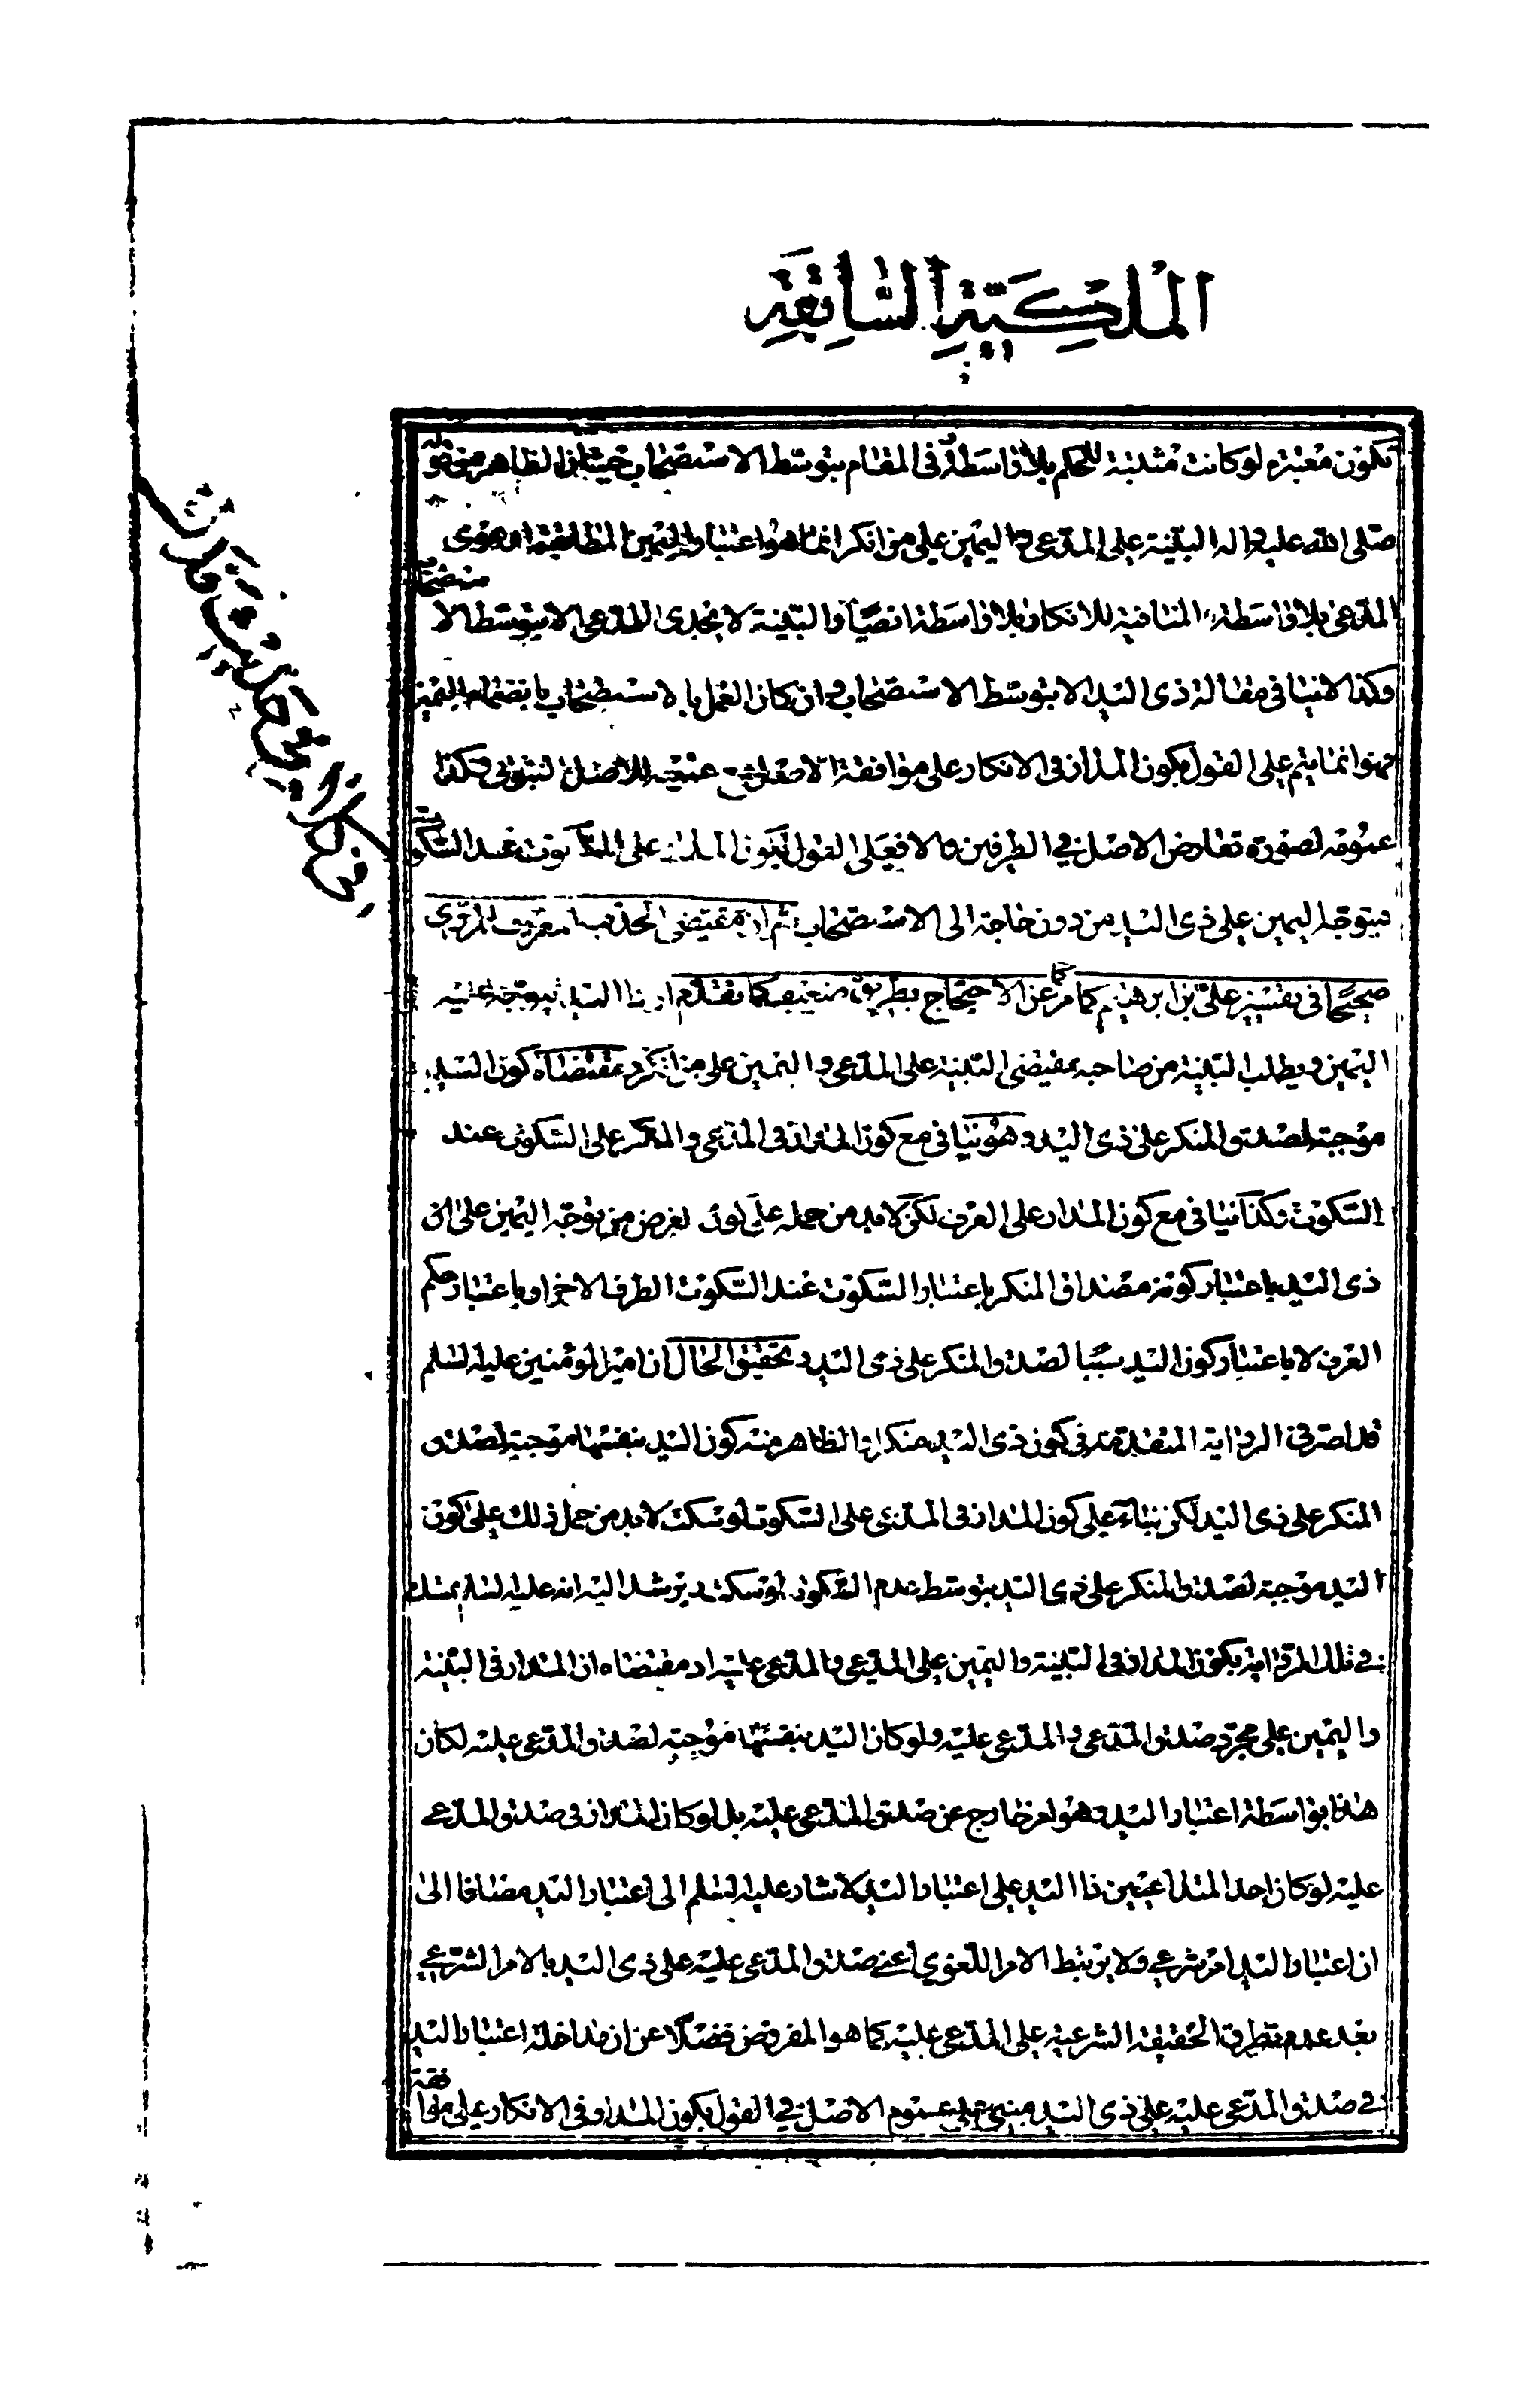 الملكية السابقة
تكون معتبرة لو كانت مثبتة للحكم بلا واسطة و في المقام بتوسط الاستصحاب حيث ان الظاهر من قوله
صلى الله عليه واله البينة على المدعى و اليمين على من انكر انما هو اعتبار اليمين المطابقة لدعوى
المدعى بلا واسطة المنافية للانكار بلا واسطة ايضا والبينة لا تجدى للمدعى الا بتوسط الاستصحاب
وكذا لا ينافى مقالة ذى اليد الا بتوسط الاستصحاب و ان كان العمل بالاستصحاب بانضمام اليمين
فهو انما يتم على القول بكون المدار فى الانكار على موافقة الاصل عمومه للاصل وكذا
عمومه لصورة تعارض الاصل في الطرفين والا فعلى القول بكون المدار على السكوت عند السكوت
فيتوجه اليمين على ذى اليد من دون حاجة الى الاستصحاب ثم ان مقتضى الحديث المعروف المروى
صحيحا فى تفسير على بن ابرهيم كما مر عن الاحتجاج بطريق ضعيف كما تقدم ان ذا اليد يتوجه عليه
اليمين و يطلب البينة من صاحبه بمقتضى البينة على المدعى و اليمين على من انكر و مقتضاه كون اليد
موجبة لصدق المنكر على ذى اليد و هو ينافى مع كون المدار فى المدعى و المنكر على السكوت عند
السكوت وكذا ينافى مع كون المدار على العرف لكن لا بد من حمله على كون الغرض من توجه اليمين على ان
ذى اليد باعتبار كونه مصداق المنكر باعتبار السكوت عند السكوت الطرف الاخر او باعتبار حكم
العرف لا باعتبار كون اليد سببا لصدق المنكر على ذى اليد و تحقيق الحال ان امير المؤمنين عليه السلم
قد اصر فى الرواية المتقدمة فى كون ذى اليد منكرا و الظاهر منه كون اليد بنفسها موجبة لصدق
المنكر على ذى اليد لكن بناء على كون المدار فى المدعى على السكوت لو سكت لا بد من حمل ذلك على كون
اليد موجبة لصدق المنكر على ذى اليد بتوسط عدم السكوت لو سكت و يرشد اليه انه عليه السلم تمسك
فى تلك الرواية بكون المدار فى البينة و اليمين على المدعى و المدعى عليه اذ مقتضاه ان المدار فى البينة
و اليمين على مجرد صدق المدعى و المدعى عليه و لو كان اليد بنفسها موجبة لصدق المدعى عليه لكان
هذا بواسطة اعتبار اليد و هو امر خارج عن صدق المدعى عليه بل لو كان المدار فى صدق المدعى
عليه لو كان احد المتداعيين ذا اليد على اعتبار اليد لاشار عليه السلم الى اعتبار اليد مضافا الى
ان اعتبار اليد امر شرعى ولا يرتبط الامر اللغوى اعنى صدق المدعى عليه على ذى اليد بالامر الشرعى
بعد عدم تطرق الحقيقة الشرعية على المدعى عليه كما هو المفروض فضلا عن ان مداخلة اعتبار اليد
فى صدق المدعى عليه على ذى اليد مبنى على عموم الاصل فى القول بكون المدار فى الانكار على موافقة